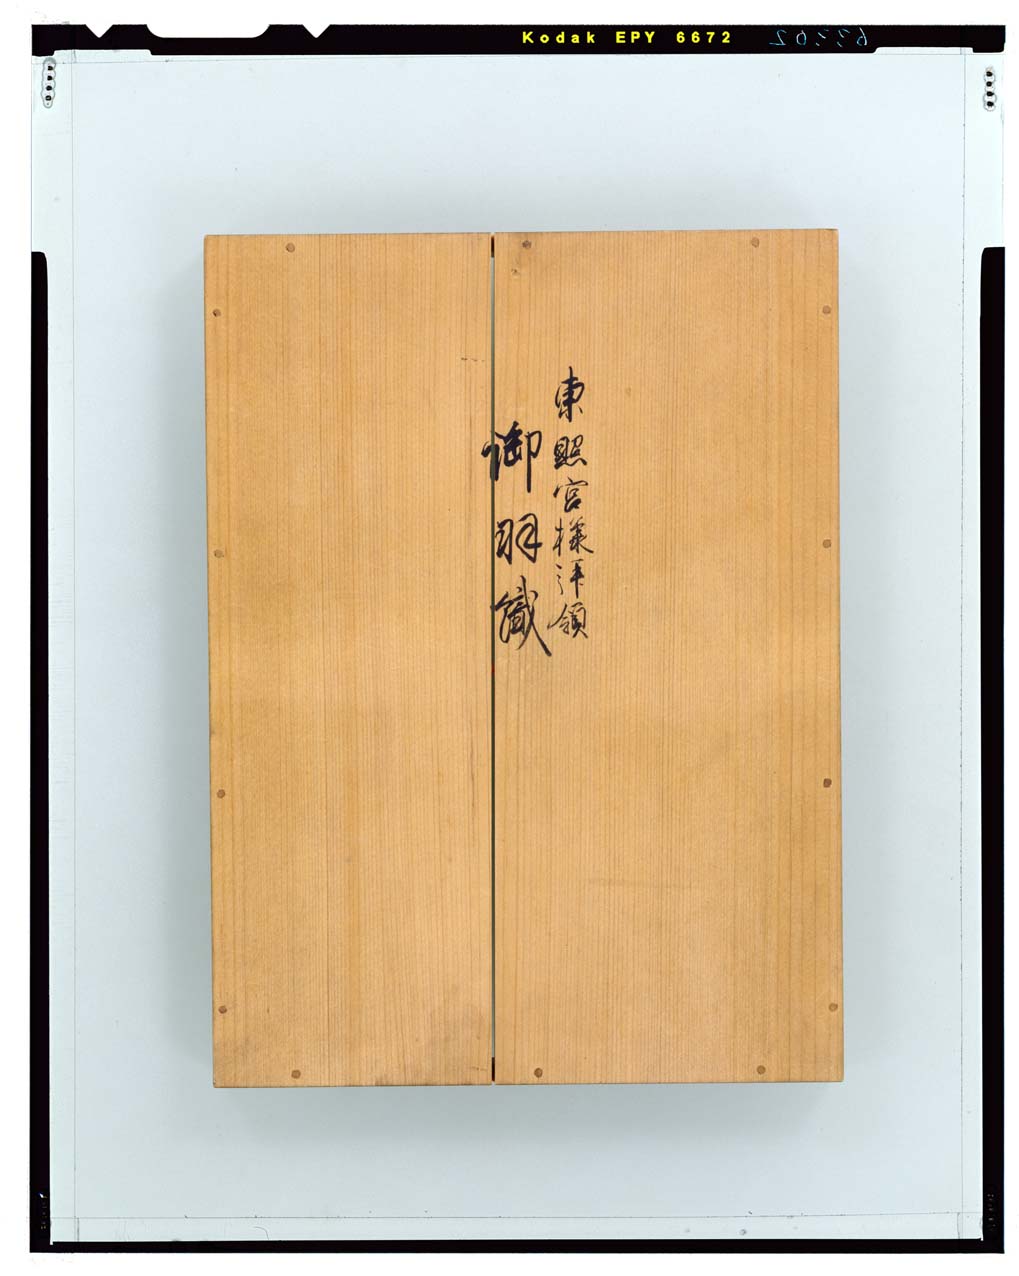 Kodak EPY 6672
63302
東照宮様拝領
御羽織